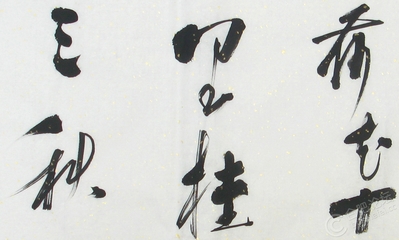 荷花十
里桂
三秋